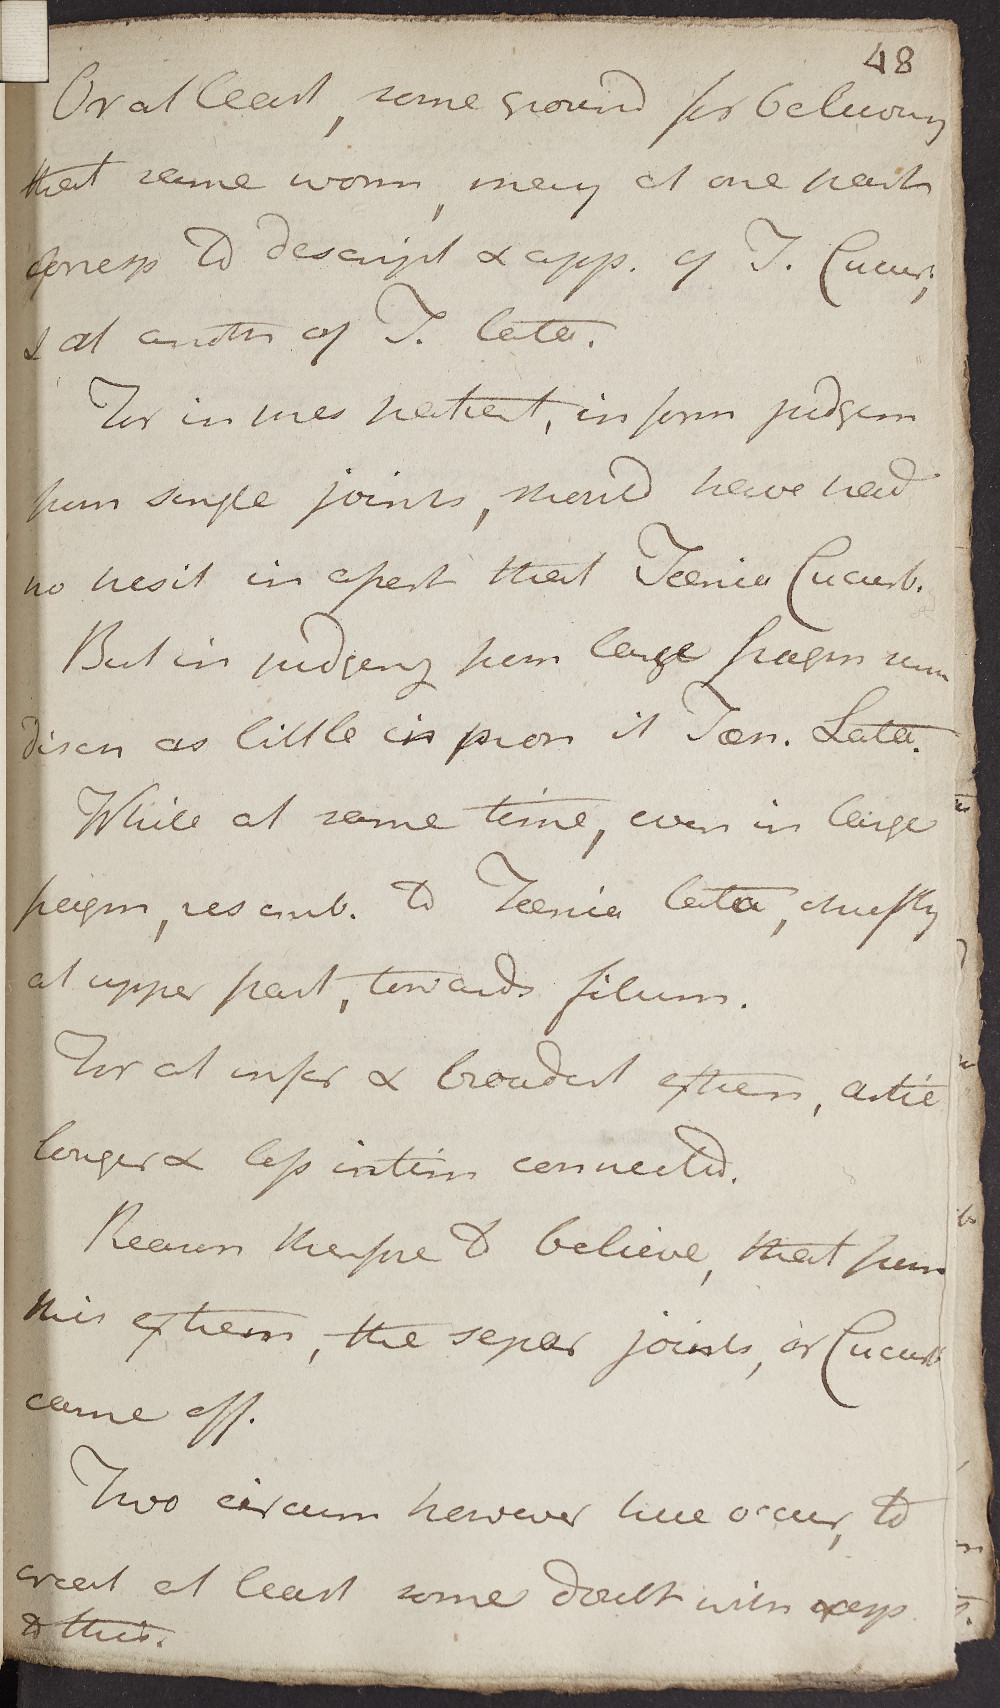 48
Or at least, some ground for believing
that same worm, may at one part
corresp to descript & app. of T. Cucur;
& at anoth of T. lata.
For in pres patient, in form judgem
from single joints, should have had
no hesit in assert that Tænia Cucurb.
But in judgeng from large fragm
as little in pron it Tæn. Lata.
While at same time, even in large
fragm, resemb. to Tænia lata, chiefly
at upper part, towards filum.
For at infer & broadest extrem, artic
longer & less intim connected.
Reason therefore to believe, that from
this extrem, the separ joints, or Cucurb
came off.
Two circum however here occur, to
creat at least some doubt with resp
to this.